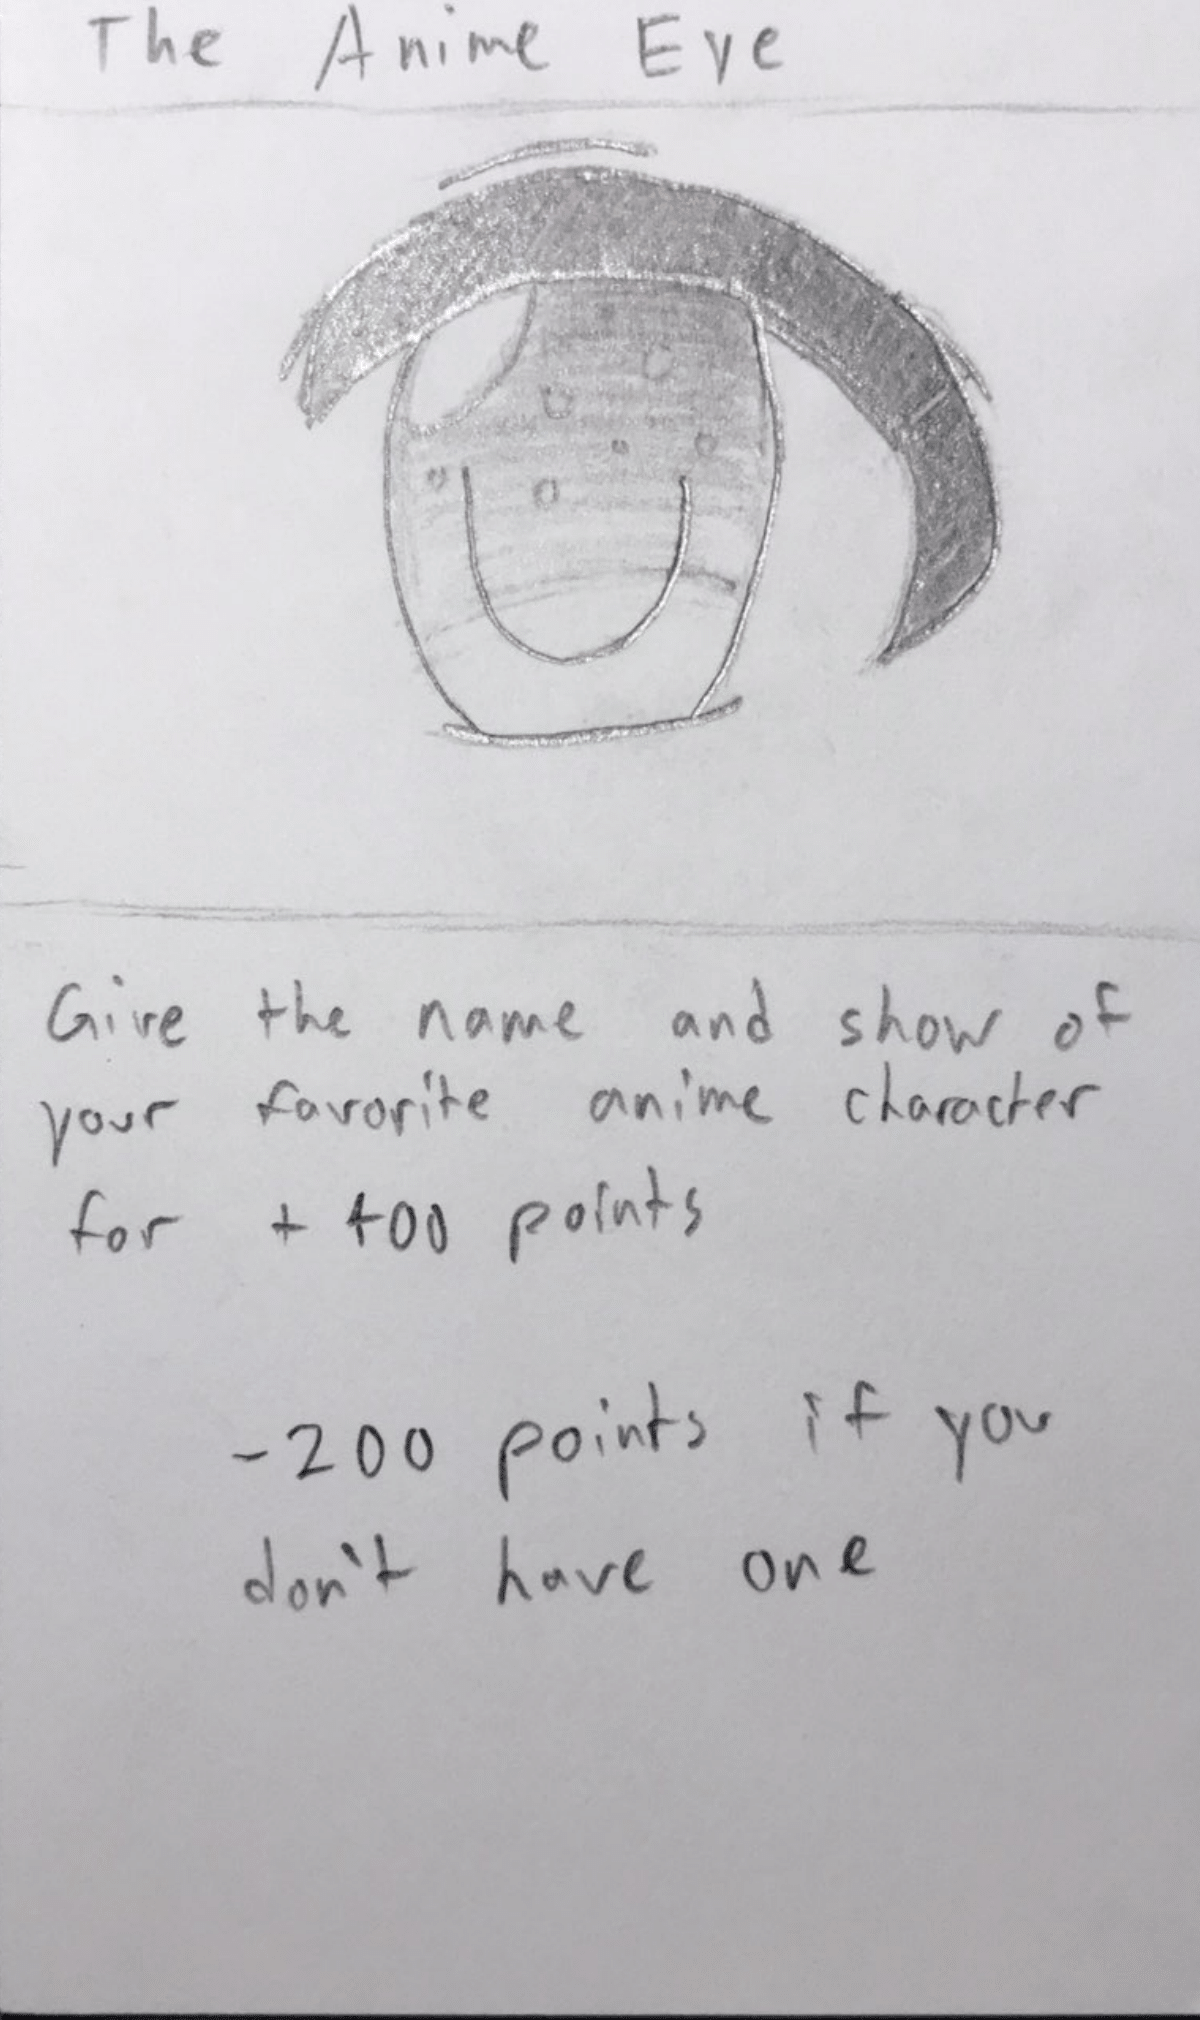 The Anime Eye
Give the name and show of
your favorite anime character
for + 400 points
-200 points if you
don't have one